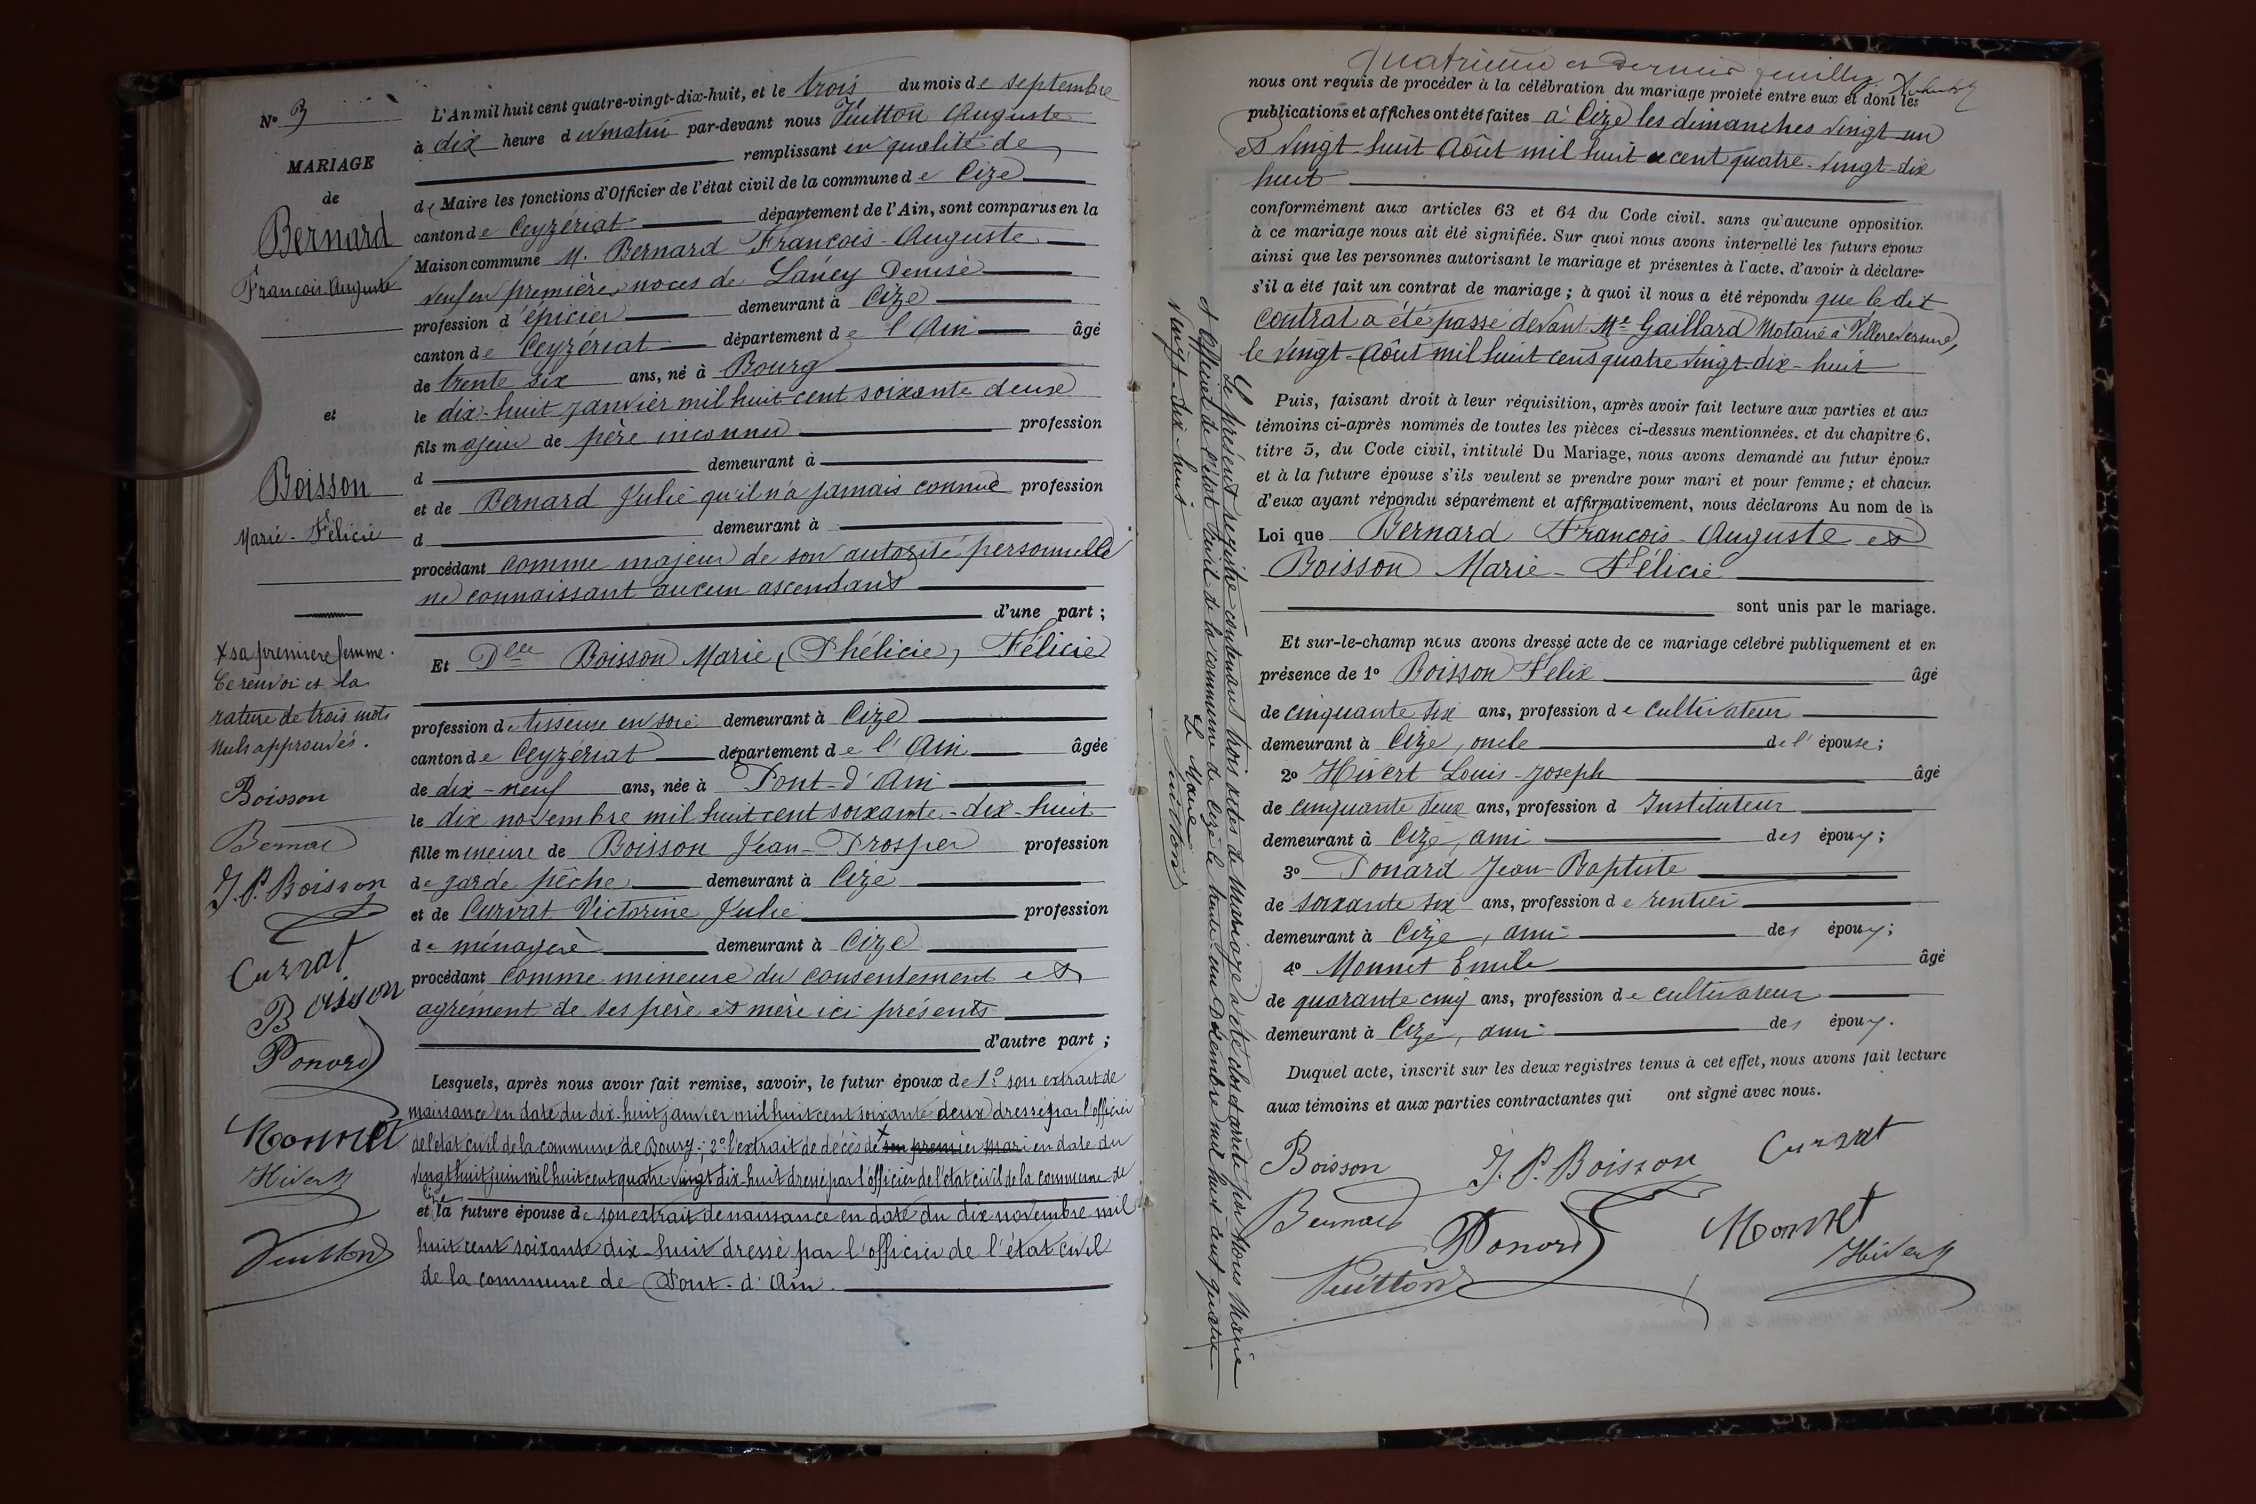 N° 3
MARIAGE
de
Bernard
François Auguste
et
Boisson
Marie-Félicie
+ sa première femme.
Ce renvoi et la
rature de trois mots
nuls approuvés.
Boisson
Bernard
J. P. Boisson
Curvat
Boisson
Ponard
Monnet
Hivert
Vuitton
L'An mil huit cent quatre-vingt-dix-huit, et le trois du mois de septembre
à dix heure du matin par-devant nous Vuitton Auguste
remplissant en qualité de
de Maire les fonctions d'Officier de l'état civil de la commune de Cize
canton de Ceyzériat département de l'Ain, sont comparus en la
Maison commune M. Bernard François-Auguste
veuf en première noces de Laucy Denise
profession d'épicier demeurant à Cize
canton de Ceyzériat département de l'Ain âgé
de trente six ans, né à Bourg
le dix-huit janvier mil huit cent soixante deux
fils majeur de père inconnu profession
d demeurant à
et de Bernard Julie qu'il n'a jamais connue profession
d demeurant à
procédant comme majeur de son autorité personnelle
ne connaissant aucun ascendant
d'une part ;
Et Dlle Boisson Marie (Phélicie) Félicie
profession de tisseuse en soie demeurant à Cize
canton de Ceyzériat département de l'Ain âgée
de dix-neuf ans, née à Pont-d'Ain
le dix novembre mil huit cent soixante-dix-huit
fille mineure de Boisson Jean-Prosper profession
de garde pêche demeurant à Cize
et de Curvat Victorine Julie profession
de ménagère demeurant à Cize
procédant comme mineure du consentement et
agrément de ses père et mère ici présents
d'autre part ;
Lesquels, après nous avoir fait remise, savoir, le futur époux de 1° son extrait de
naissance en date du dix-huit janvier mil huit cent soixante deux dressé par l'officier
de l'état civil de la commune de Bourg ; 2° l'extrait de décès de + son premier mari en date du
vingt huit juin mil huit cent quatre vingt dix-huit dressé par l'officier de l'état civil de la commune de
Cize
et la future épouse de son extrait de naissance en date du dix novembre mil
huit cent soixante dix-huit dressé par l'officier de l'état civil
de la commune de Pont-d'Ain.
Quatrième et dernier feuillet
nous ont requis de procéder à la célébration du mariage projeté entre eux et dont les
publications et affiches ont été faites à Cize les dimanches vingt un
et vingt-huit Août mil huit cent quatre-vingt-dix
huit
conformément aux articles 63 et 64 du Code civil. sans qu'aucune opposition
à ce mariage nous ait été signifiée. Sur quoi nous avons interpellé les futurs époux
ainsi que les personnes autorisant le mariage et présentes à l'acte, d'avoir à déclarer
s'il a été fait un contrat de mariage ; à quoi il nous a été répondu que le dit
contrat a été passé devant Me Gaillard Notaire à Villereversure,
le vingt-Août mil huit cent quatre vingt-dix-huit
Puis, faisant droit à leur réquisition, après avoir fait lecture aux parties et aux
témoins ci-après nommés de toutes les pièces ci-dessus mentionnées, et du chapitre 6.
titre 5, du Code civil, intitulé Du Mariage, nous avons demandé au futur époux
et à la future épouse s'ils veulent se prendre pour mari et pour femme ; et chacun
d'eux ayant répondu séparément et affirmativement, nous déclarons Au nom de la
Loi que Bernard François-Auguste et
Boisson Marie-Félicie
sont unis par le mariage.
Et sur-le-champ nous avons dressé acte de ce mariage célébré publiquement et en
présence de 1° Boisson Félix âgé
de cinquante six ans, profession de cultivateur
demeurant à Cize, oncle de l'épouse ;
2° Hivert Louis-Joseph âgé
de cinquante deux ans, profession d Instituteur
demeurant à Cize, ami des époux ;
3° Ponard Jean-Baptiste
de soixante six ans, profession de rentier
demeurant à Cize, ami des époux ;
4° Monnet Emile âgé
de quarante cinq ans, profession de cultivateur
demeurant à Cize, ami des époux.
Duquel acte, inscrit sur les deux registres tenus à cet effet, nous avons fait lecture
aux témoins et aux parties contractantes qui ont signé avec nous.
Boisson J. P. Boisson Curvat
Bernard Ponard Monnet
Vuitton Hivert
Le présent registre contenant trois actes de Mariage a été clos et arrêté par Nous Maire
et Officier de l'état civil de la commune de Cize le trente un Décembre mil huit cent quatre
vingt-dix-huit
Le Maire
Vuitton